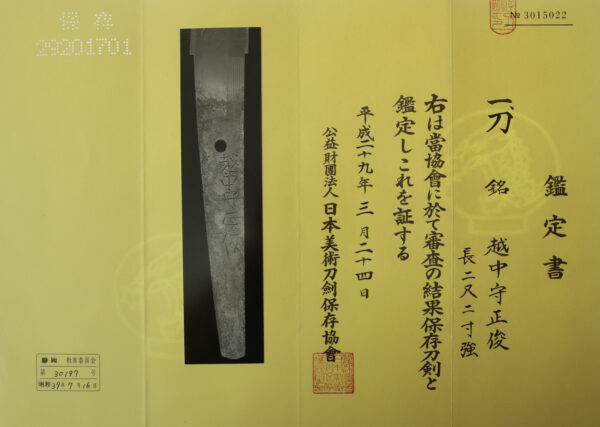 № 3015022
鑑定書
一、刀 銘 越中守正俊
長二尺二寸強
右は當協會に於て審査の結果保存刀剣と
鑑定しこれを証する
平成二十九年三月二十四日
公益財團法人日本美術刀劍保存協會
越中守正俊
保存
29201701
教育委員会
第 30197 号
昭和39年7月16日